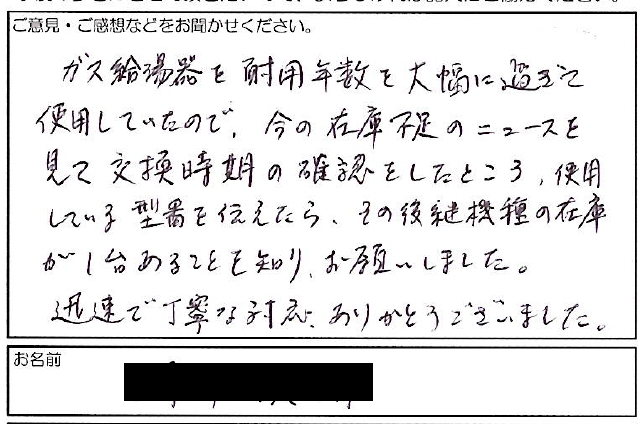 ご意見・ご感想などをお聞かせください。
ガス給湯器を耐用年数を大幅に過ぎて
使用していたので、今の在庫不足のニュースを
見て交換時期の確認をしたところ、使用
している型番を伝えたら、その後継機種の在庫
が1台あることを知り、お願いしました。
迅速で丁寧な対応、ありがとうございました。
お名前